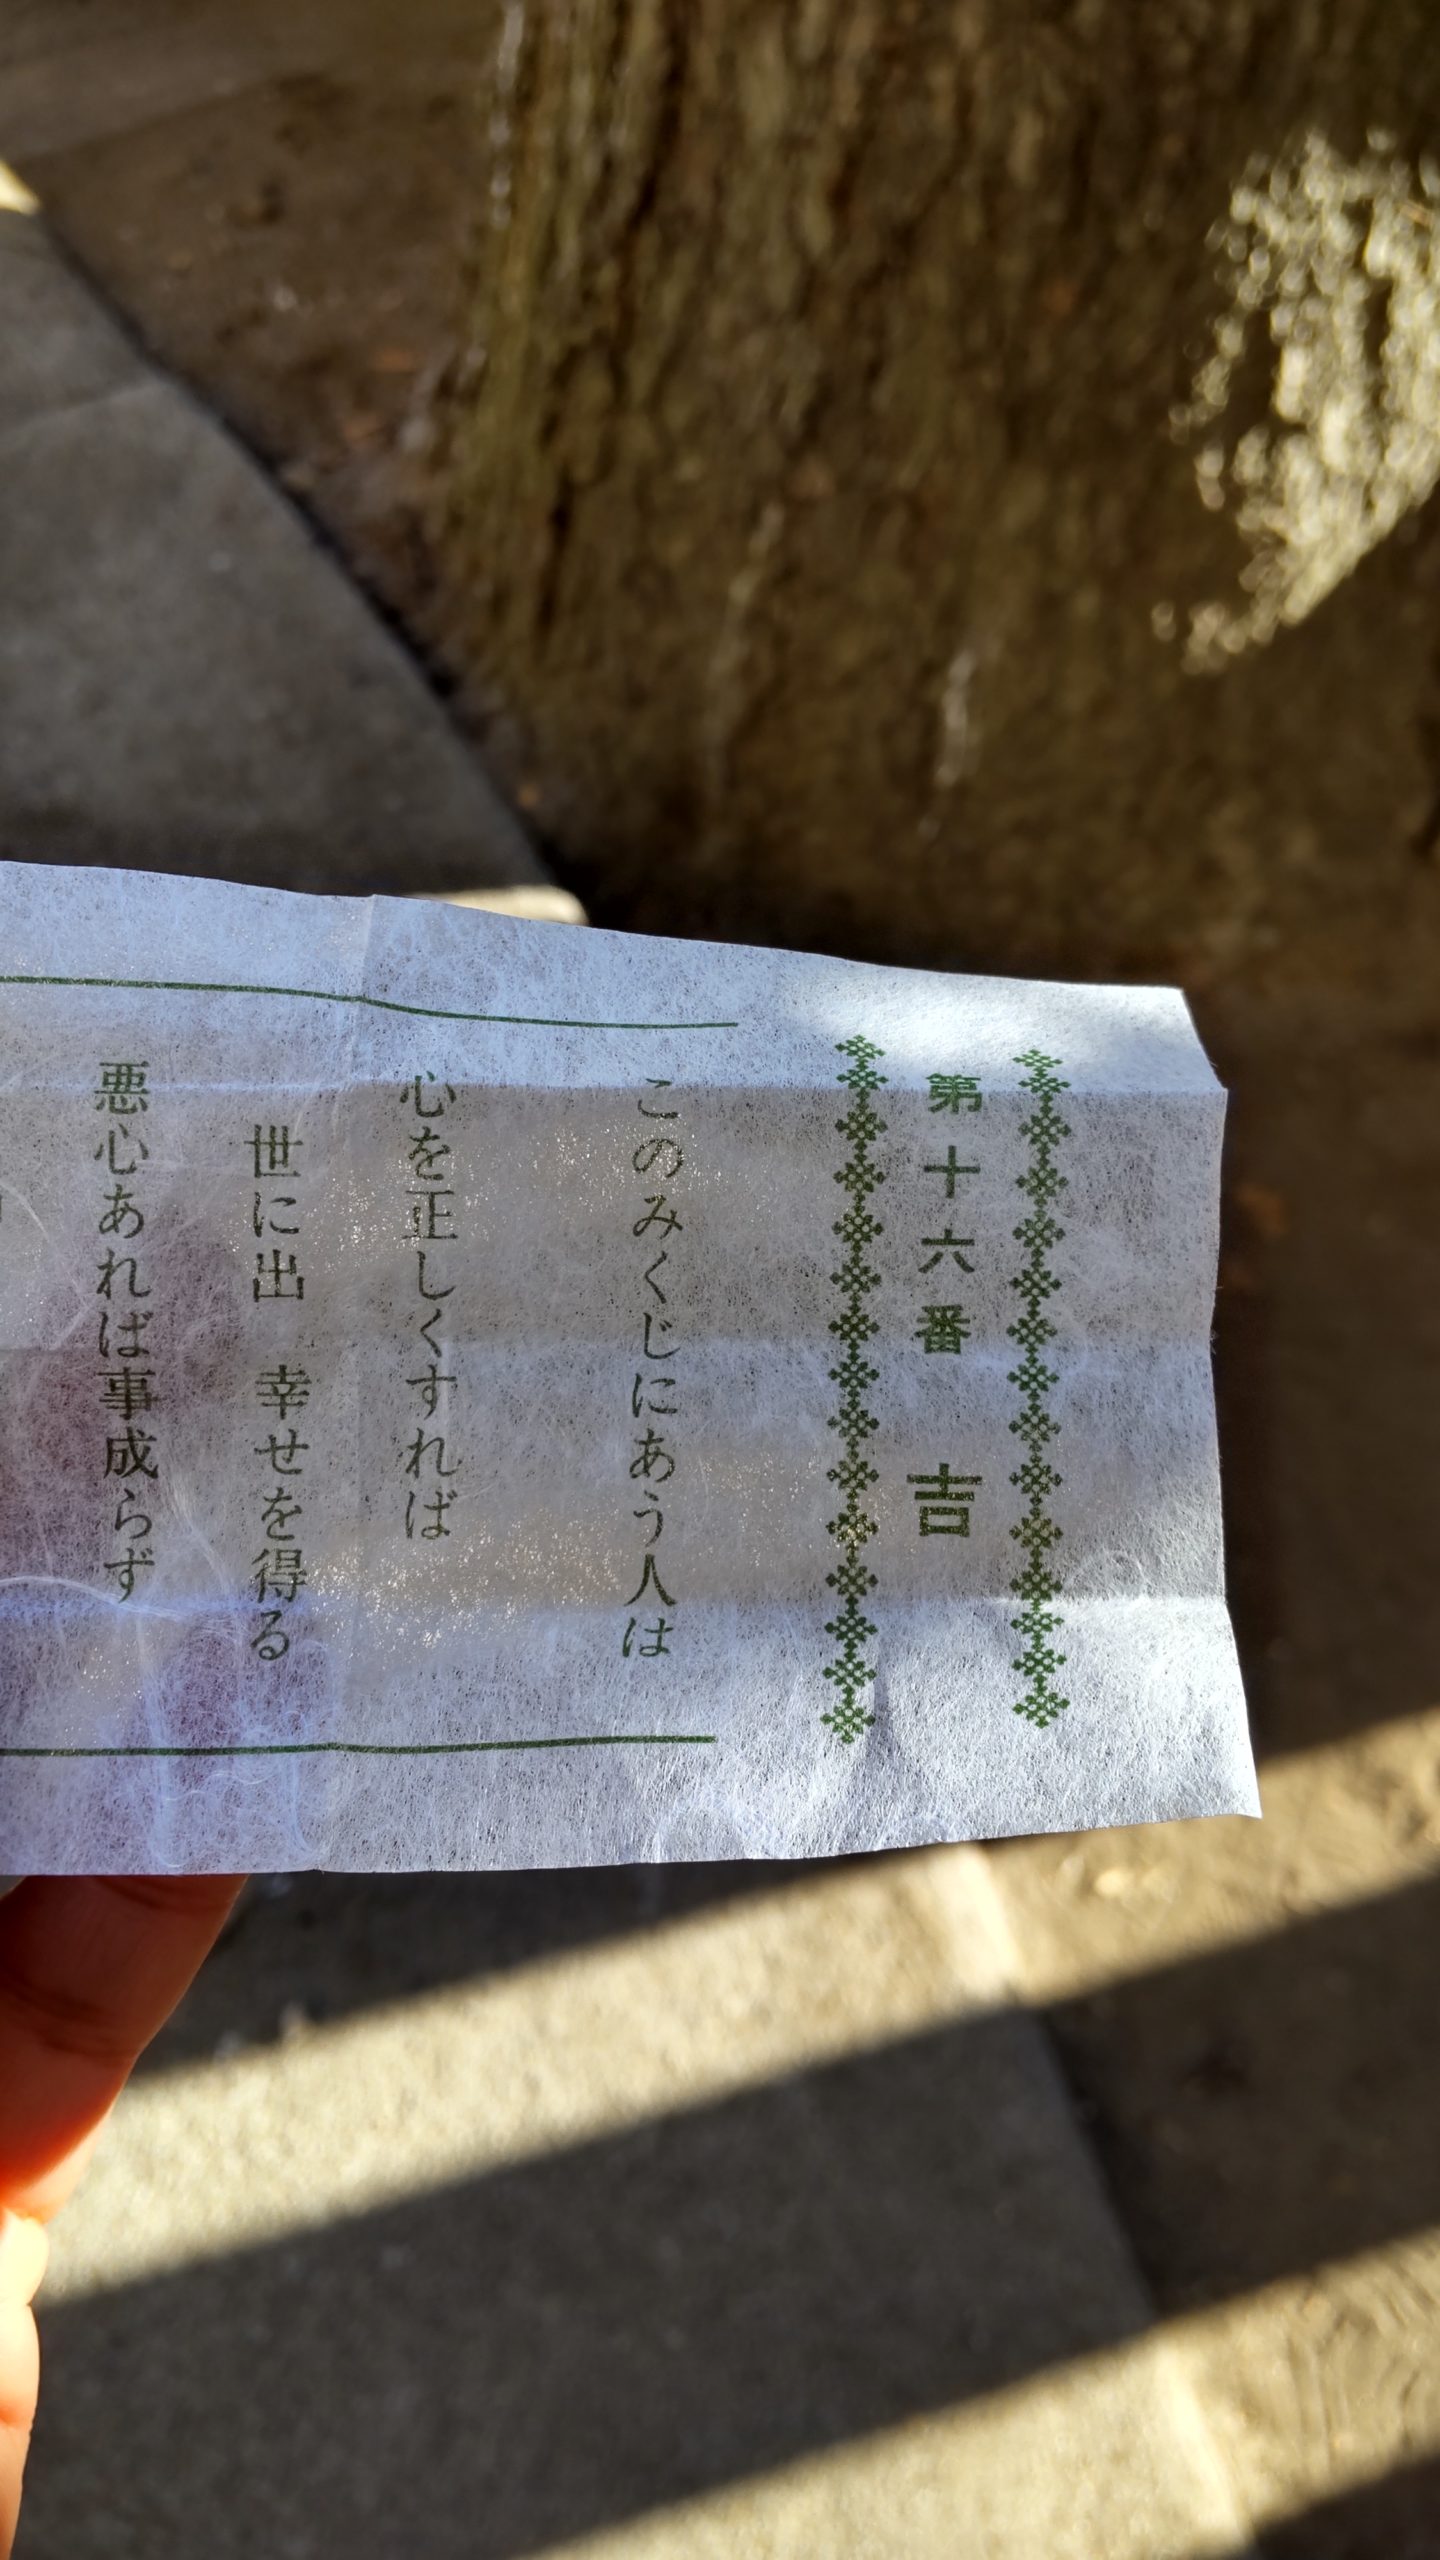 第十六番 吉
このみくじにあう人は
心を正しくすれば
世に出 幸せを得る
悪心あれば事成らず